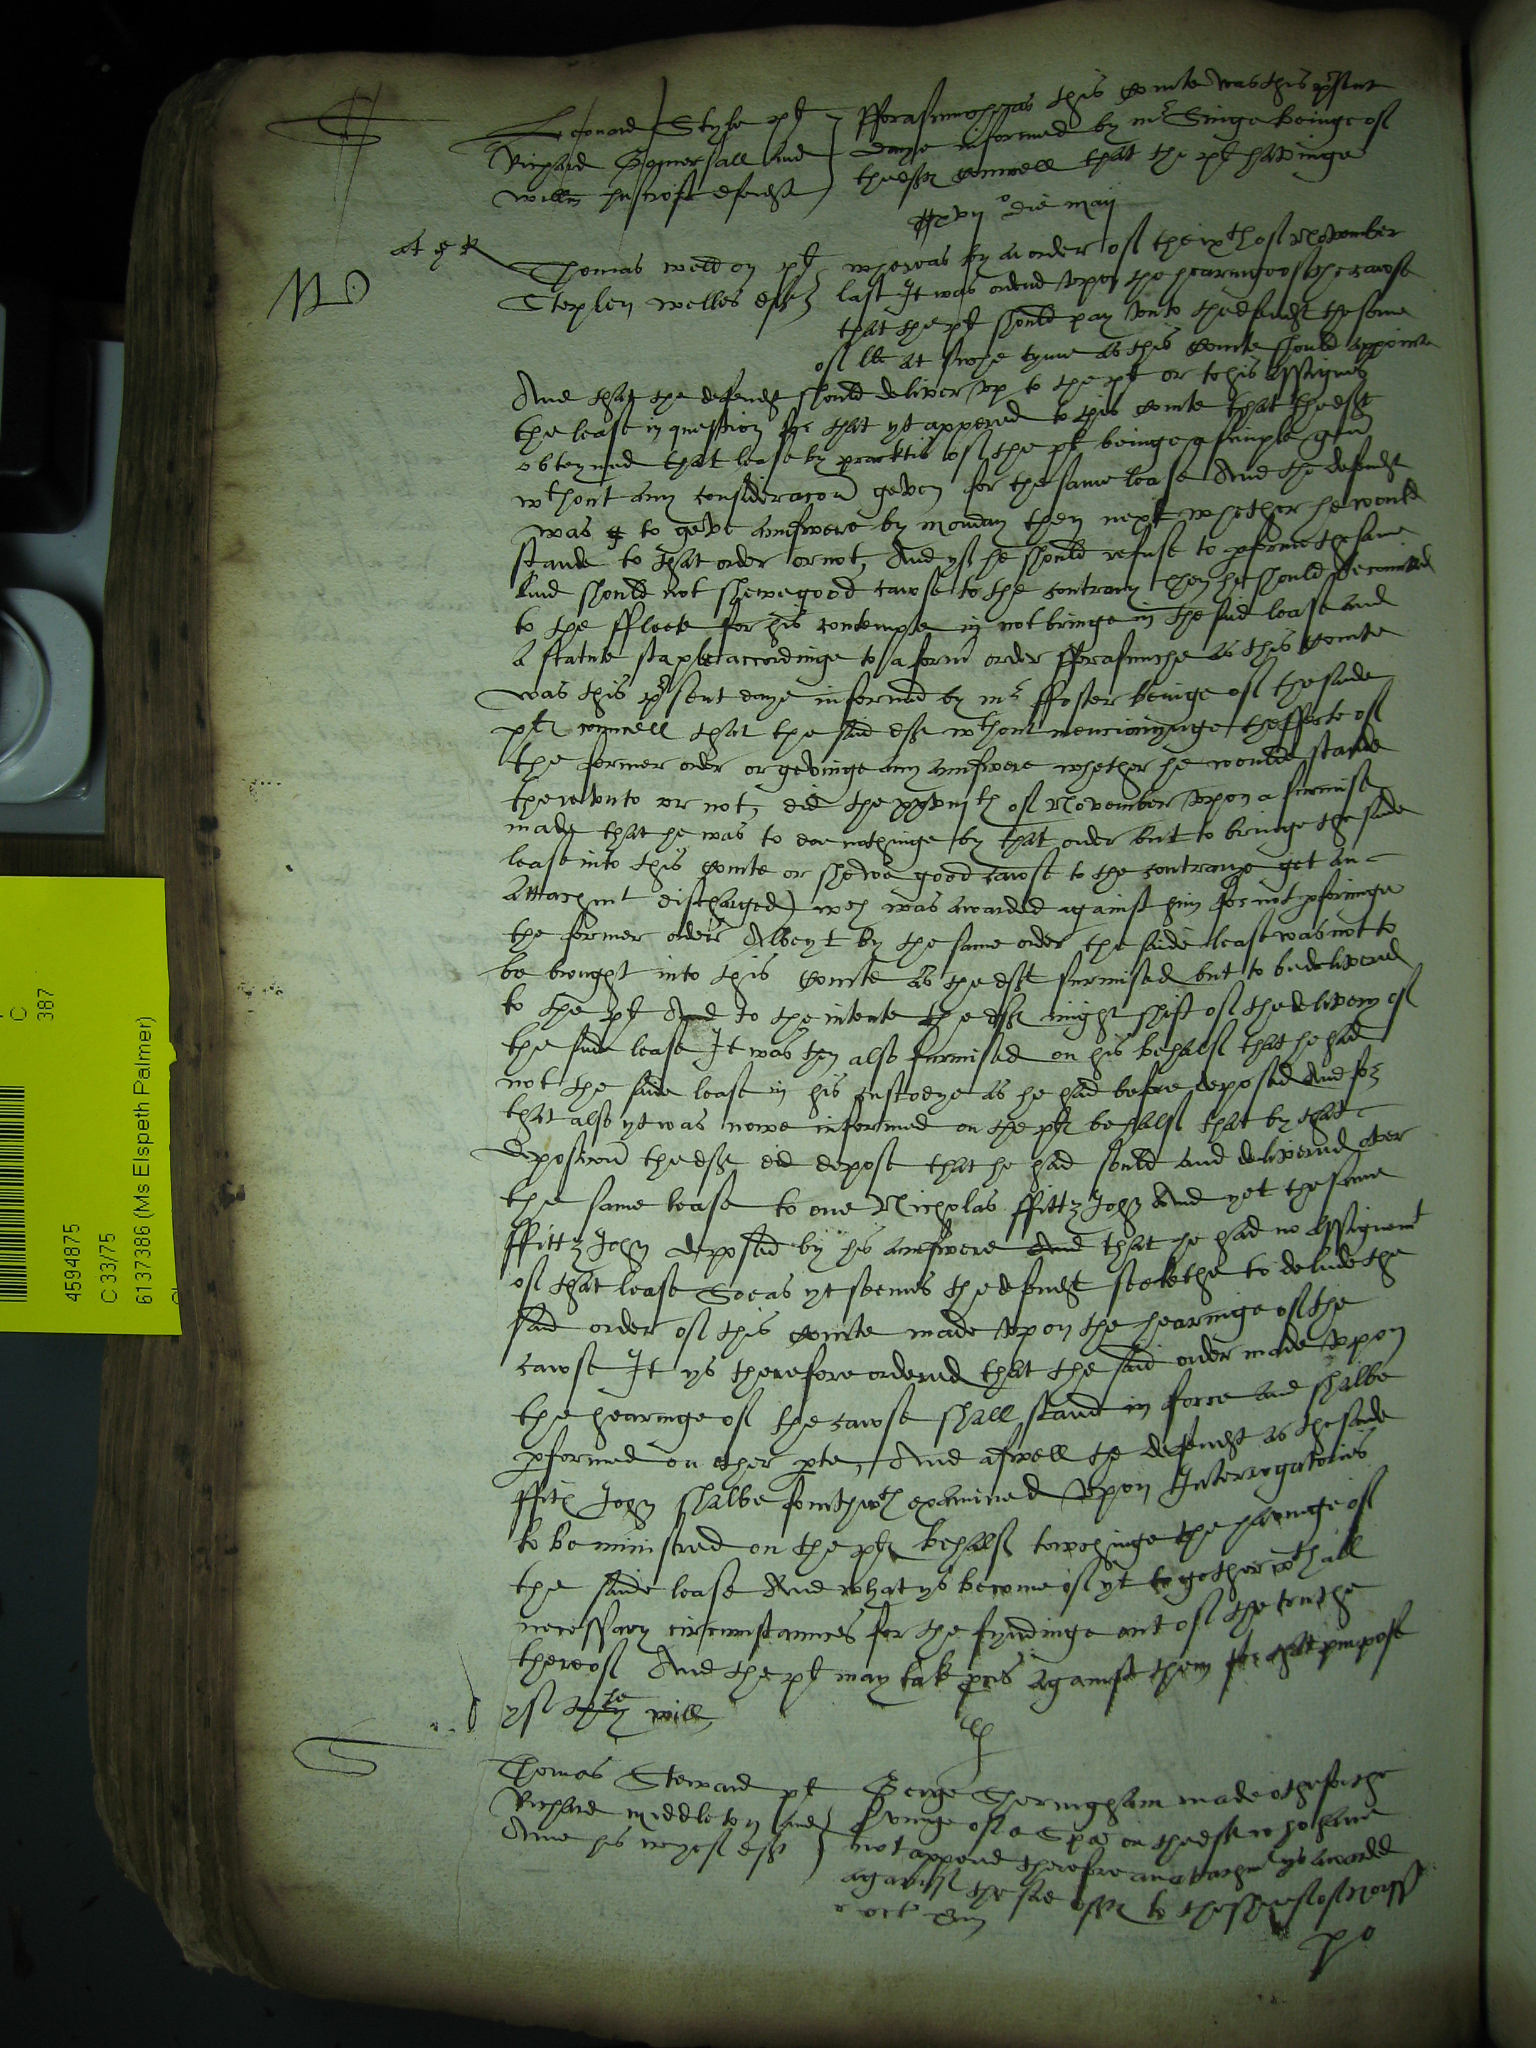 Leonard Style plt fforasmuche as this Courte was this psent
Richard Somersall and daye informed by mr Singe beinge of
Willm defendt thedefts councell that the plt havinge
xvij o die maij
Thomas weldon plt whereas by an order of the ixth of November
Stephen welles deft last It was ordered upon the hearinge of the cawse
that the plt should pay unto the defendt the some
of at suche tyme as this Courte should appointe
And that the defendt should deliver up to the plt or to his Assignes
the lease in question for that yt appered to this Courte that thedeft
obteyned that lease by practis of the plt beinge a simple
wthout any consideracon geven for the same lease And the defendt
was to geve answere by monday then next whether he would
stande to that order or not, And yf he should refuse to pforme the same
And should not shewe good cawse to the contrary then he should be comitted
to the ffleete for his contempte in not bringe in the said lease and
A statute staple accordinge to a form order fforasmuche as this Courte
was this psent daye informed by mr ffoster beinge of the saide
plts councell that the said deft wthout mencionynge theffecte of
the former order or gevinge any answere whether he woulde stande
thereunto or not, did the xxviijth of November upon a surmise
made that he was to doe nothinge by that order but to bringe the saide
lease into this Courte or shewe good cawse to the contrarye get an
Attachmt discharged) wch was awarded against him for not pforminge
the former orders Albeyt by the same order the saide lease was not to
be brought into this Courte as the deft surmised but to be delivered
to the plt And to the intente the deft might shift of the delivery of
the saide lease It was then also surmised on his behalf that he had
not the saide lease in his custodye as he had before deposed And for
that also yt was nowe informed on the plts behalf that by that
deposicon the deft did depose that he had sould and delivered over
the same lease to one Nicholas ffittz John And yet the same
ffittz John deposed by his answere And that he had no Assignemt
of that lease Soe as yt seemes the defendt seekethe to delude the
said order of this Courte made upon the hearinge of the
cawse It ys therefore ordered that the said order made upon
the hearinge of the cawse shall stand in force and shalbe
pformed on ether pte, And aswell the defendt as the saide
ffitz John shalbe fourthwth examined upon Interrogatories
to be ministred on the plts behalf towchinge the havinge of
the saide lease And what ys become of yt together wth all
necessary circumstaunces for the fyndinge out of the truthe
thereof And the plt may take pces against them for that purpose
yf he will,
Thomas Steward plt George Theringham made othe for the
Richard middleton and svinge of a Spa on thedefts who have
Anne his wyef deft not appered therefore an attachmt ys awarded
against the said defts to the shereef of
po
4594875
C 33/75
6137386 (Ms Elspeth Palmer)
C
387